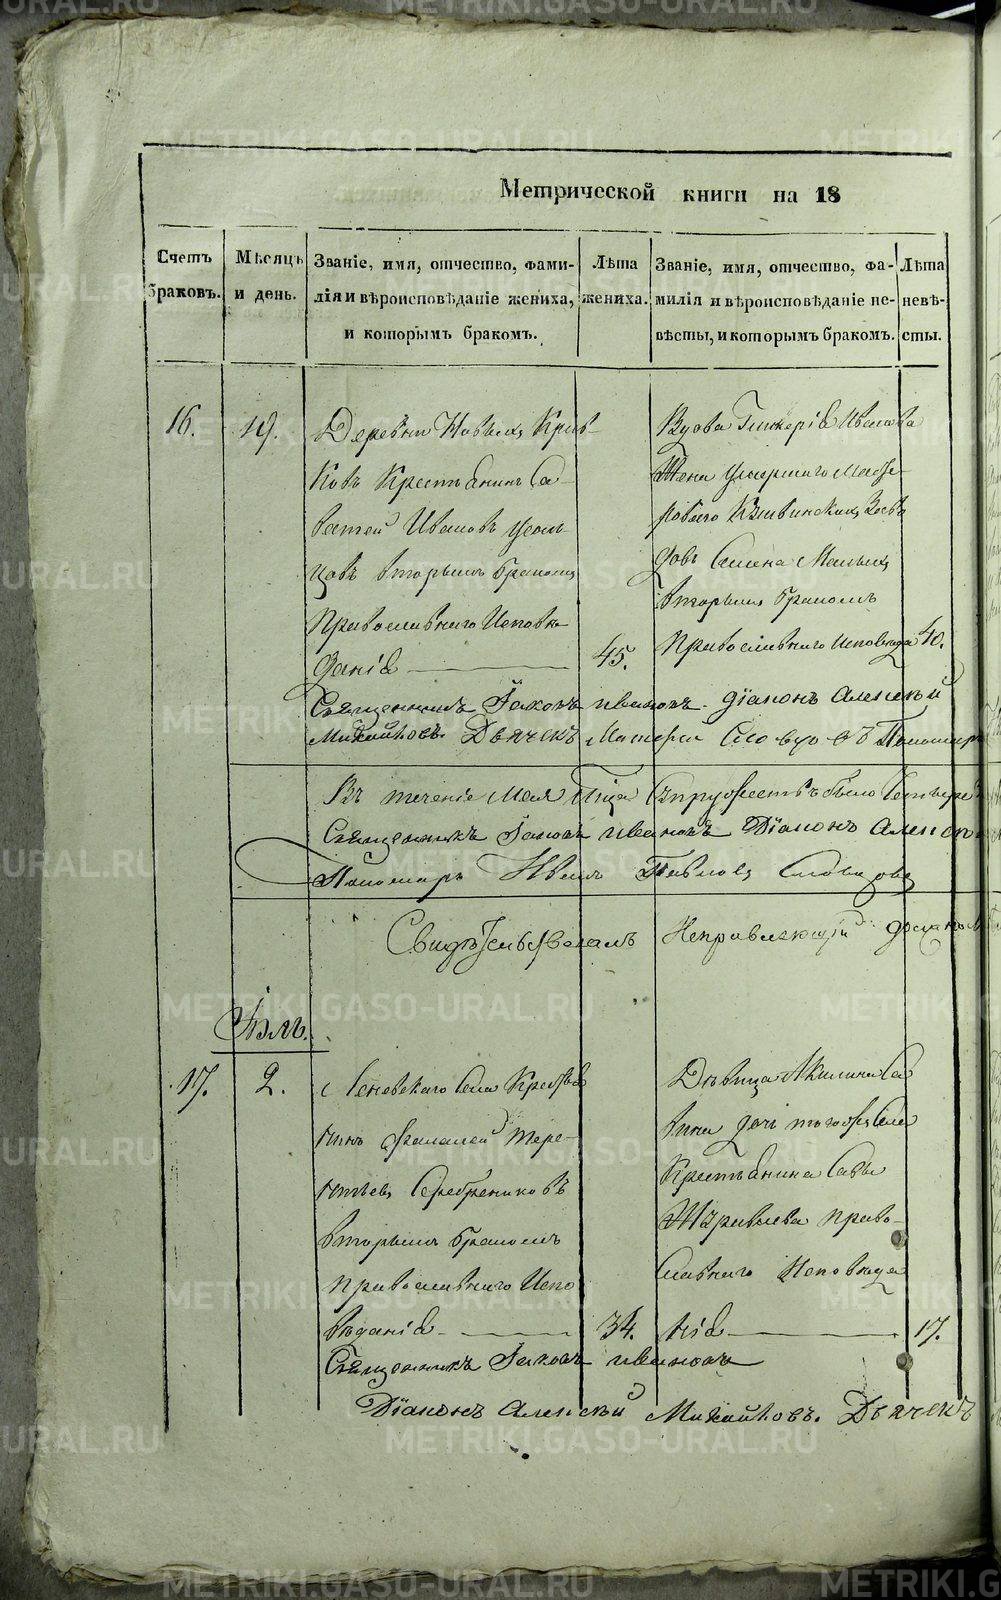 Метрической книги на 18
Счетъ браковъ.
Мѣсяцъ и день.
Званіе, имя, отчество, фами-
лія и вѣроисповѣданіе жениха,
и которымъ бракомъ.
Лѣта жениха.
Званіе, имя, отчество, фа-
милія и вѣроисповѣданіе не-
вѣсты, и которымъ бракомъ.
Лѣта невѣ-
сты.
16.
19.
Деревни Новыхъ
ковъ Крестьянинъ Са
ватей Ивановъ Усол
цовъ вторымъ бракомъ
Православнаго Исповѣ
данія
45.
Вдова Гликерія Иванова
Жена умершаго Масте
роваго
Семена
вторымъ бракомъ
Православнаго исповѣда
40.
Священникъ Іаковъ Ивановъ. Діаконъ Алексѣй
Михайловъ. Дьячекъ Пономарь
Въ теченіе Мая Супружествъ было Четыре
Священникъ Іаковъ Ивановъ Діаконъ Алексѣ
Пономарь Павловъ Словцовъ
Свидѣтельствовалъ Исправляющій должно
Іюль.
17.
2.
Леневскаго Села Крестья
нинъ Фалалей Тере-
нтьевъ Серебрениковъ
вторымъ бракомъ
православнаго Испо
вѣданія
34.
Дѣвица Акилина Са
вина дочь тогожъ Села
Крестьянина Савы
Журавлева право-
славнаго Исповѣда
нія
17.
Священникъ Іаковъ Ивановъ
Діаконъ Алексѣй Михайловъ. Дьячекъ
METRIKI.GASO-URAL.RU